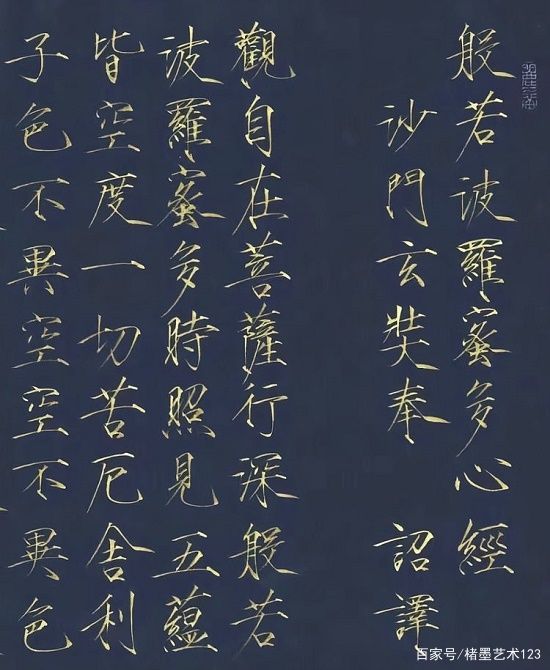 般若波羅蜜多心經
沙門玄奘奉 詔譯
觀自在菩薩行深般若
波羅蜜多時照見五蘊
皆空度一切苦厄舍利
子色不異空空不異色
百家号/楮墨艺术123